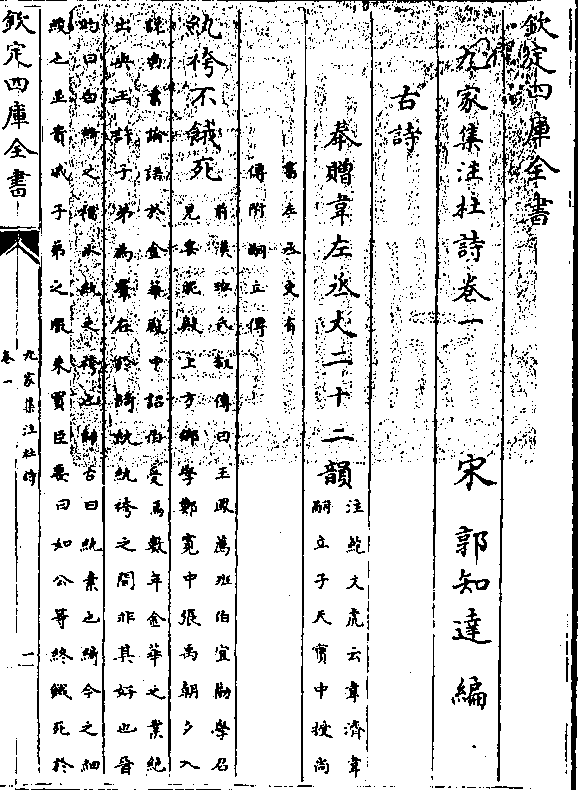 欽定四庫全書
九家集注杜詩卷一 宋 郭知達 編
古詩
奉贈韋左丞丈二十二韻
注鮑文虎云韋濟韋
嗣立子天寶中授尚
書左丞史有
傳附嗣立傳
紈袴不餓死
前漢班氏叙傳曰王鳳薦班伯宜勸學召
見宴昵殿上方鄉學鄭寛中張禹朝夕入
説尚書論語於金華殿中詔伯受焉數年金華之業絶
出與王許子弟為羣在於綺紈紈袴之間非其好也晉
灼曰白綺之襦冰紈之袴也師古曰紈素也綺今之細
綾也並貴戚子弟之服朱買臣妻曰如公等終餓死於
欽定四庫全書
九家集注杜詩
卷一
一